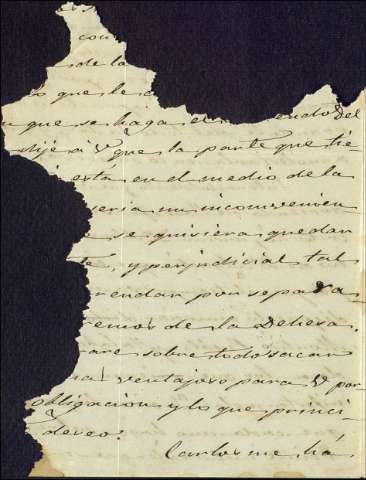 con
de la
o que le
que se haga el endo del
dije a V. que la parte que tie-
esta en el medio de la
seria un inconvenien
se quisiera quedar
te, y perjudicial tal
rendar por separa
remos de la Dehesa.
are sobre todo sacar
mas ventajoso para V. por
obligacion y lo que princi
deseo.
Carlos me há